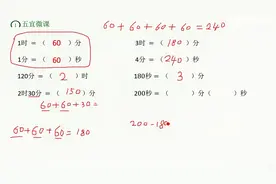 五宜微课
60 + 60 + 60 + 60 = 240
1时 = ( 60 ) 分
3时 = ( 180 ) 分
1分 = ( 60 ) 秒
4分 = ( 240 ) 秒
120分 = ( 2 ) 时
180秒 = ( 3 ) 分
2时30分 = ( 150 ) 分
200秒 = ( ) 分 ( ) 秒
60 + 60 + 30 =
60 + 60 + 60 = 180
200 - 180